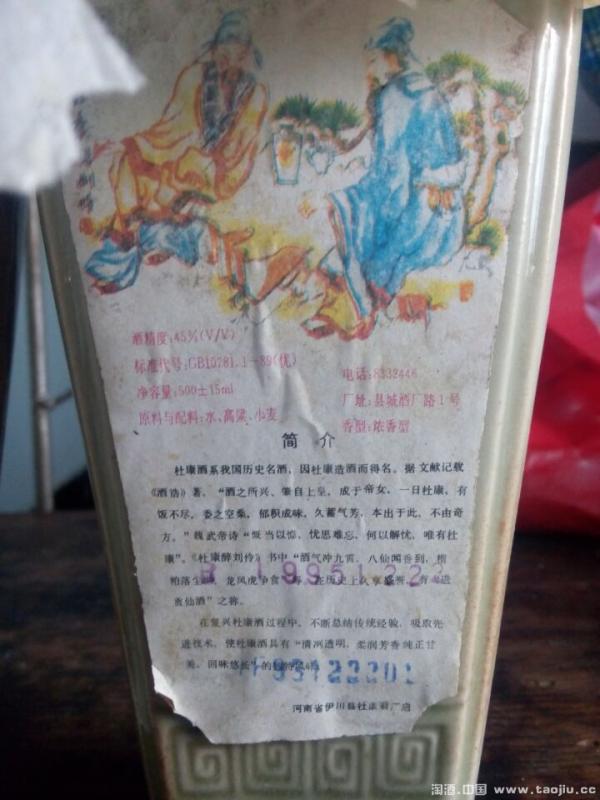 酒精度:45%(V/V)
标准代号:GB10781.1-89(优)
净容量:500±15ml
原料与配料:水、高粱、小麦
电话:8332446
厂址:县城酒厂路1号
香型:浓香型
简介
杜康酒系我国历史名酒,因杜康造酒而得名。据文献记载
《酒诰》著,“酒之所兴、肇自上皇,成于帝女,一日杜康,有
饭不尽,委之空桑,郁积成味,久蓄气芳,本出于此,不由奇
方。”魏武帝诗“慨当以慷,忧思难忘,何以解忧,唯有杜
康”。《杜康醉刘伶》书中“酒气冲九霄,八仙闻香到,糟
粕落生 龙凤虎争食 在历史上久享盛 有 进
贡仙酒”之称。
19951222
在复兴杜康酒过程中,不断总结传统经验,吸取先
进技术,使杜康酒具有“清冽透明,柔润芳香纯正甘
美,回味悠长”的
95122201
河南省伊川县杜康酒厂启
淘酒.中国 www.taojiu.cc